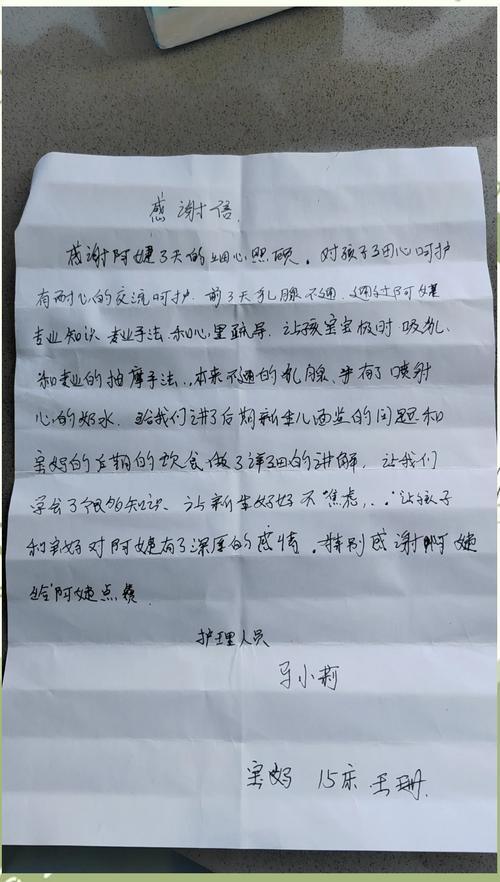 感谢语
感谢阿婕3天的细心照顾。对孩子细心呵护
有耐心的交流呵护.前3天乳腺不通.通过阿婕
专业知识、专业手法.和心里疏导.让孩宝宝极时吸乳、
和专业的抽摩手法.,本来不通的乳腺、有了喷射
心的奶水.给我们讲了后期新生儿西监的问题和
宝妈的后期的饮食做了详细的讲解,让我们
学会了很多知识、让新生好妈不焦虑,.让孩子
和宝妈对阿婕有了深厚的感情.特别感谢阿婕
给阿婕点赞.
护理人员
马小莉
宝妈 15床 王珊.